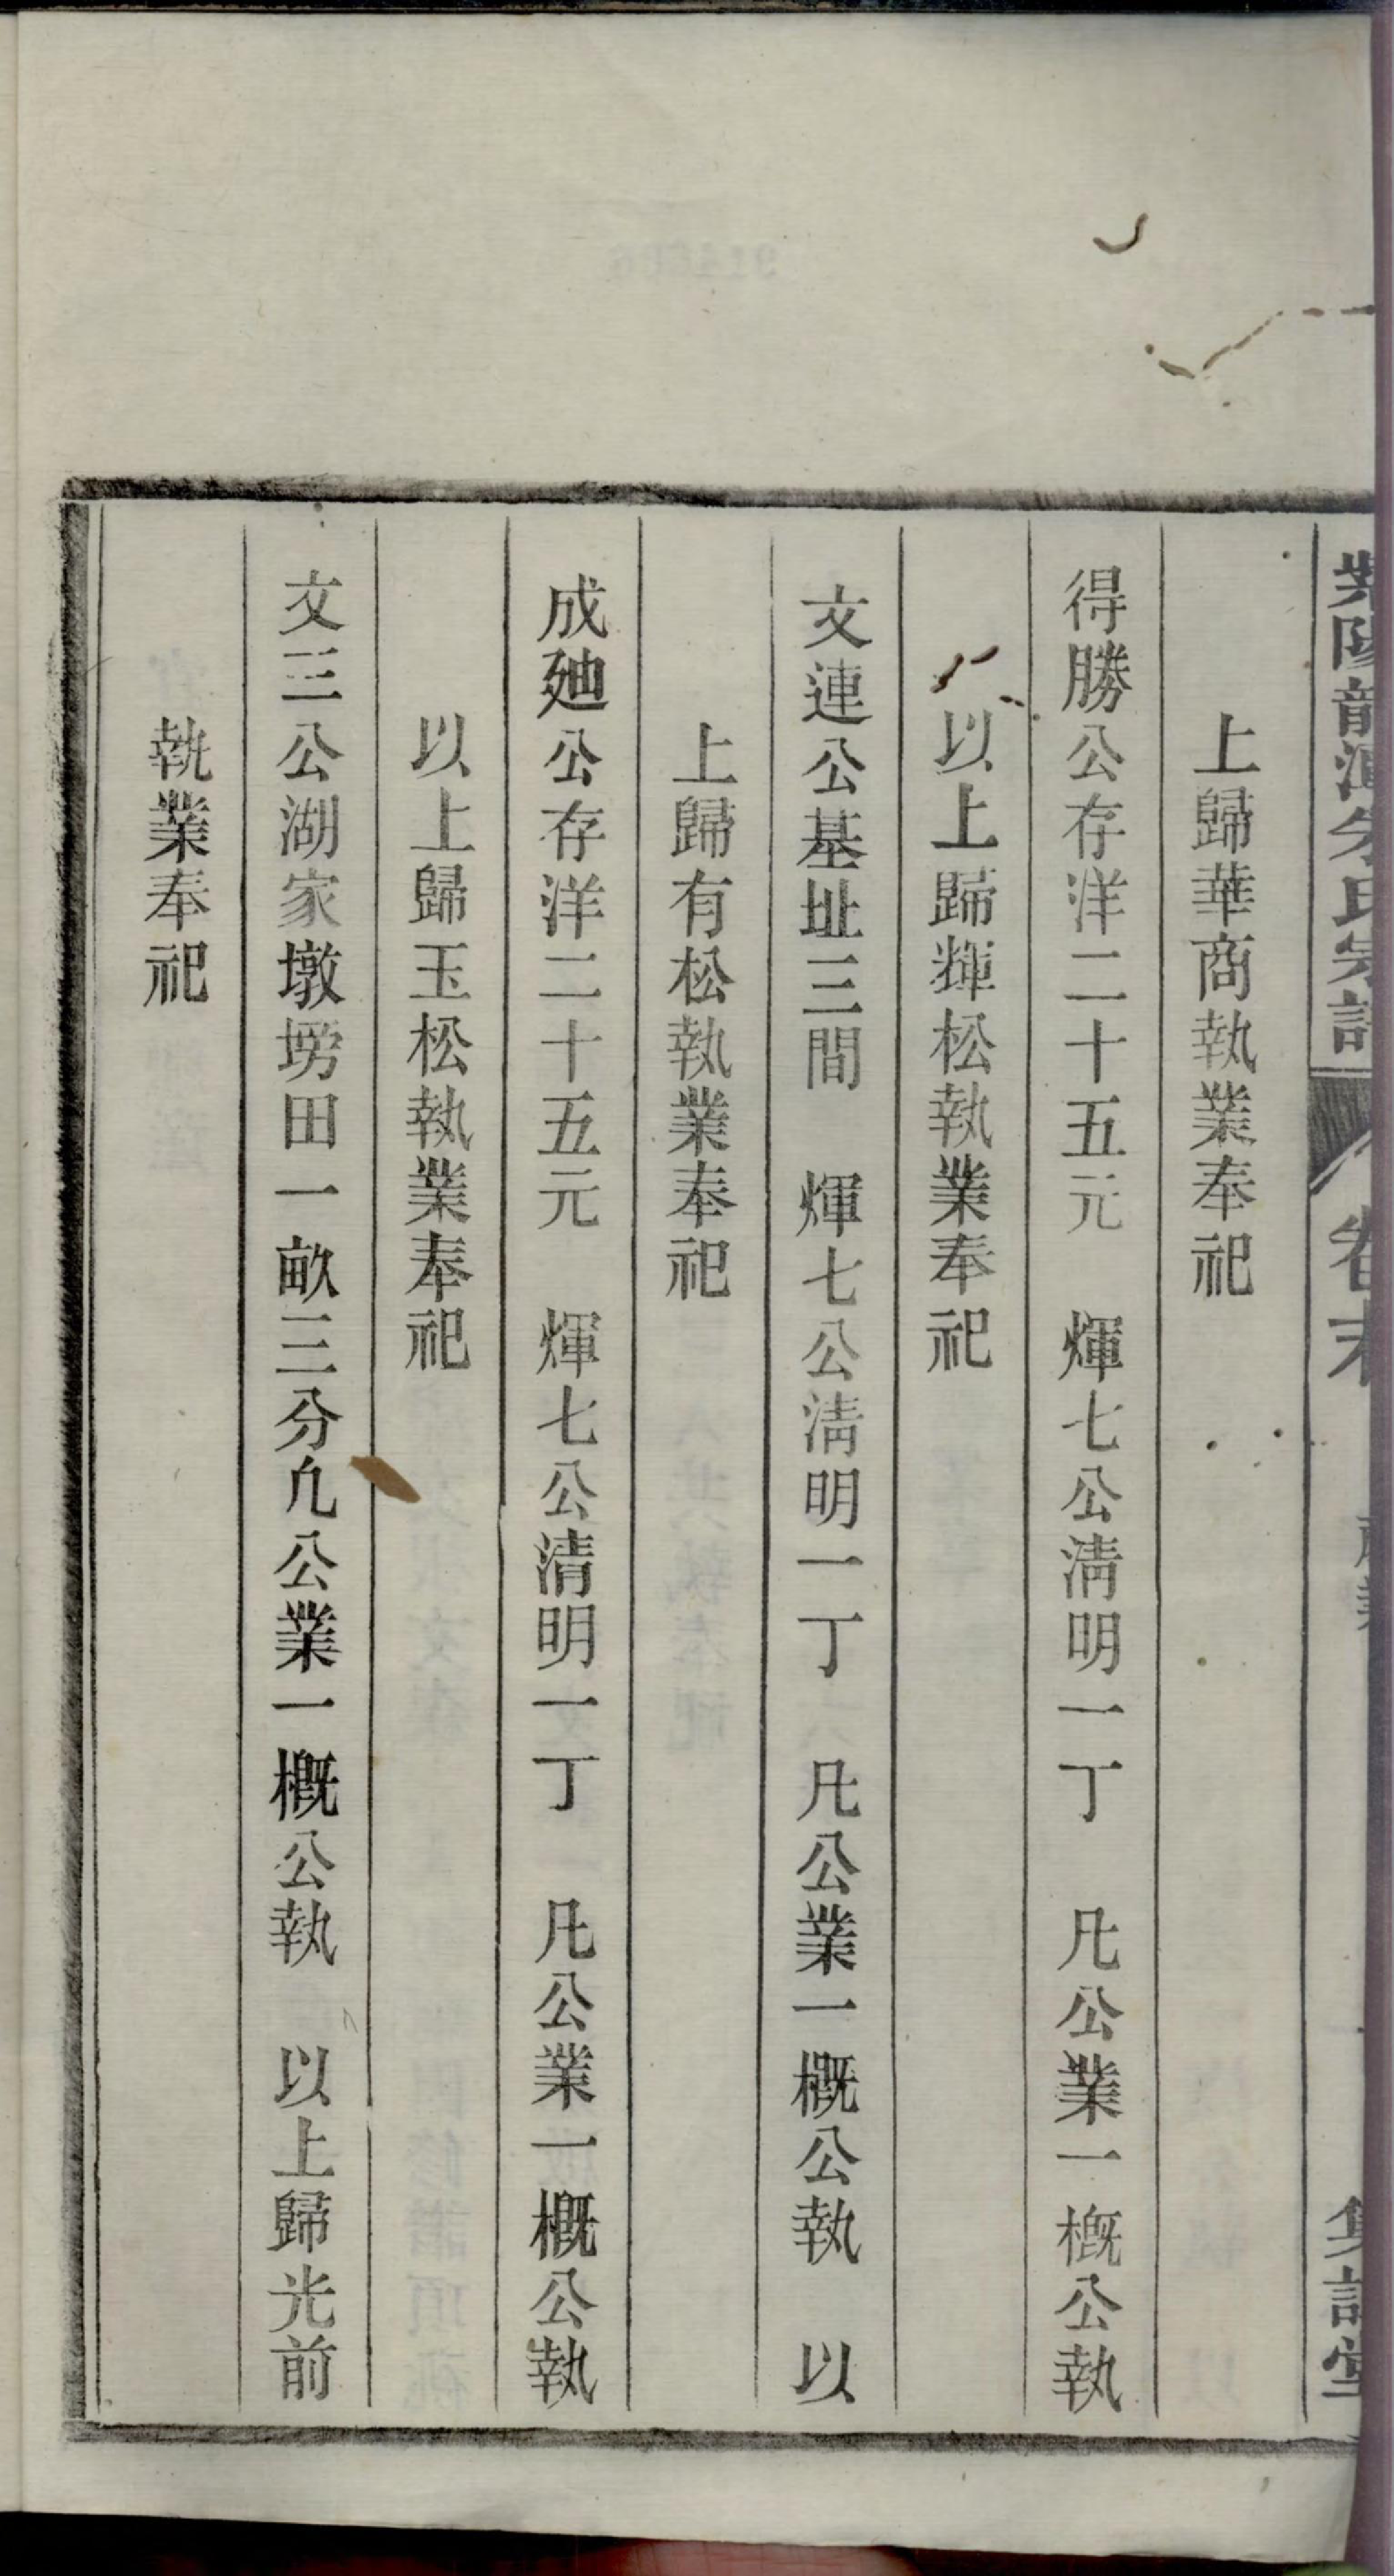 上歸華商執業奉祀
得勝公存洋二十五元　煇七公淸明一丁　凡公業一概公執
以上歸輝松執業奉祀
文連公基址三間　煇七公淸明一丁　凡公業一概公執　以
上歸有松執業奉祀
成廸公存洋二十五元　煇七公清明一丁　凡公業一概公執
以上歸玉松執業奉祀
文三公湖家墩塝田一畝三分凢公業一概公執　以上歸光前
執業奉祀